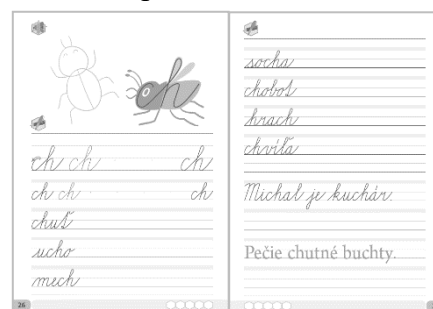 ch ch ch
ch ch ch
chuť
ucho
mech
26
socha
chobot
hrach
chvíľa
Michal je kuchár.
Pečie chutné buchty.